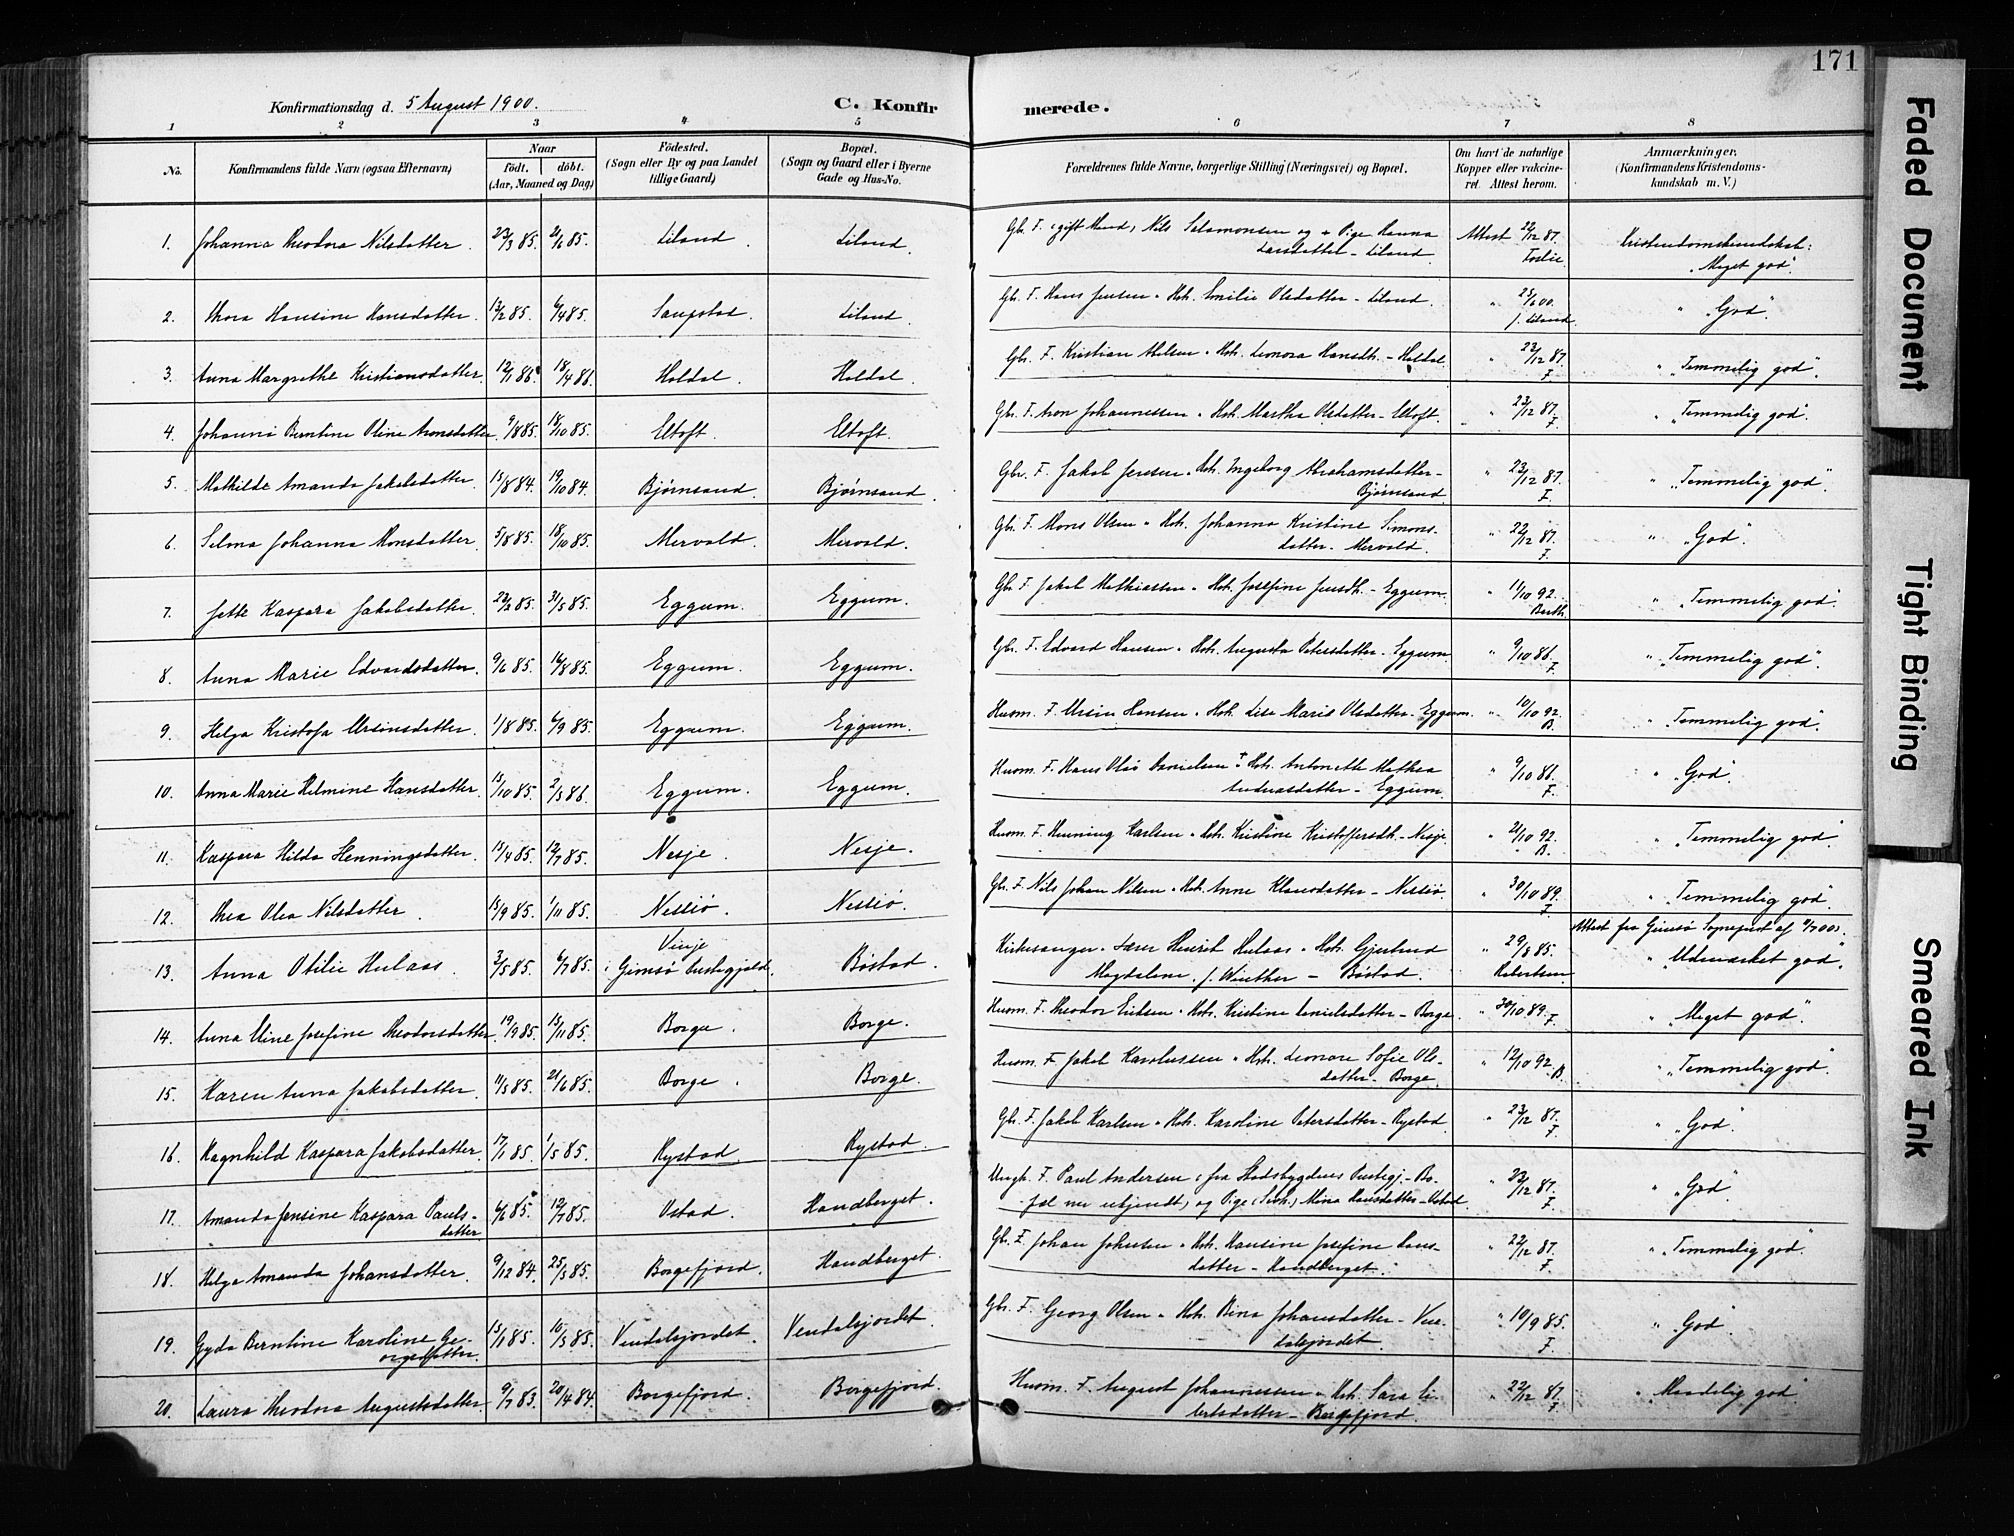 171
Konfirmationsdag d. 5 August 1900.
C. Konfirmerede.
1 2 3 4 5 6 7 8
No.
Konfirmandens fulde Navn (ogsaa Efternavn)
Naar
födt. döbt.
(Aar, Maaned og Dag)
Födested.
(Sogn eller By og paa Landet
tillige Gaard)
Bopæl.
(Sogn og Gaard eller i Byerne
Gade og Hus-No.
Forældrenes fulde Navne, borgerlige Stilling (Næringsvei) og Bopæl.
Om havt de naturlige
Kopper eller vakcine-
ret. Attest herom.
Anmærkninger.
(Konfirmandens Kristendoms-
kundskab m. V.)
1. Johanna Theodora Nilsdatter. 23/3 85. 21/6 85. Liland. Liland. Gbr. F. (gift Mand) Nils Salamonsen og Pige Hanna Attest 22/12 87. Kristendomskundskab:
Larsdatter - Liland. "Meget god".
2. Thora Hansine Hansdatter. 13/2 85. 6/4 85. Saupstad. Liland. Gbr. F. Hans Jensen " Hst. Emilie Olsdatter - Liland. " 25/6 00. " "God".
J. Liland
3. Anna Margrethe Kristiansdatter. 12/1 86. 18/4 86. Holdal. Holdal. Gbr. F. Kristian Nilsen " Hst. Leonora Hansdt. - Holdal. " 22/12 87. F. " "Temmelig god".
4. Johanna Berntine Oline Aronsdatter 9/8 85. 18/10 85. Eltoft. Eltoft. Gbr. F. Aron Johannessen " Hst. Martha Olsdatter - Eltoft. " 23/12 87. F. " "Temmelig god".
5. Mathilde Amanda Jakobsdatter. 15/8 84. 19/10 84. Bjørnsand. Bjørnsand. Gbr. F. Jakob Jensen " Hst. Ingeborg Abrahamsdatter - " 23/12 87. F. " "Temmelig god".
Bjørnsand.
6. Selma Johanna Monsdatter. 5/8 85. 18/10 85. Mervold. Mervold. Gbr. F. Mons Olsen " Hst. Johanna Kristine Simons- " 22/12 87. F. " "God".
datter - Mervold.
7. Jette Kaspara Jakobsdatter. 22/2 85. 31/5 85. Eggum. Eggum. Gbr. F. Jakob Mathiassen " Hst. Josefine Jensdt. - Eggum. " 11/10 92. " "Temmelig god".
8. Anna Marie Edvardsdatter. 9/6 85. 16/8 85. Eggum. Eggum. Gbr. F. Edvard Hansen " Hst. Augusta Petersdatter - Eggum. " 9/10 86. F. " "Temmelig god".
9. Helga Kristofa Ursinsdatter. 1/8 85. 6/9 85. Eggum. Eggum. Husm. F. Ursin Hansen " Hst. Lise Marie Olsdatter - Eggum. " 10/10 92. B. " "Temmelig god".
10. Anna Marie Helmine Hansdatter. 15/10 85. 2/5 86. Eggum. Eggum. Husm. F. Hans Olai Danielsen " Hst. Antonette Mathea " 9/10 86. F. " "God".
Andreasdatter - Eggum.
11. Kaspara Hilda Henningsdatter. 15/4 85. 12/7 85. Nesje. Nesje. Husm. F. Henning Karlsen " Hst. Kristine Kristoffersdt. - Nesje. " 21/10 92. B. " "Temmelig god".
12. Thea Olea Nilsdatter. 15/9 85. 1/11 85. Nessiø. Nessiø. Gbr. F. Nils Johan Nilsen " Hst. Anne Klausdatter - Nessiø. " 30/10 89. F. " "Temmelig god".
13. Anna Otilie Hulaas. 3/5 85. 6/7 85. Vinje Bøstad. Kirkesanger " Lærer Hulaas " Hst. Gjertrud " 29/8 85. Attest fra Gimsø Sogneprest af 00.
i Gimsø Prestegjeld. Magdalene f. Winther - Bøstad. Robertsen " "Udmærket god".
14. Anna Oline Josefine Theodorsdatter. 19/9 85. 15/11 85. Borge. Borge. Husm. F. Theodor Eriksen " Hst. Kristine Danielsdatter - Borge. " 30/10 89. F. " "Meget god".
15. Karen Anna Jakobsdatter. 11/5 85. 21/6 85. Borge. Borge. Husm. F. Jakob Karolussen " Hst. Leonore Sofie Ols- " 12/10 92. B. " "Temmelig god".
datter - Borge.
16. Ragnhild Kaspara Jakobsdatter. 17/1 85. 1/5 85. Rystad. Rystad. Gbr. F. Jakob Karlsen " Hst. Karoline Petersdatter - Rystad. " 23/12 87. F. " "God".
17. Amanda Jensine Kaspara Pauls- 6/6 85. 12/7 85. Ostad. Handberget. Ungk. F. Paul Andersen (fra Stadsbygdens Prestegj. - Bo- " 22/12 87. F. " "God".
datter pæl nu ukjendt) og Pige Mina Hansdatter - Ostad.
18. Helga Amanda Johansdatter. 9/12 84. 25/5 85. Borgefjord. Handberget. Gbr. F. Johan Johnsen " Hst. Hansine Josefine Hans- " 22/12 87. F. " "Temmelig god".
datter - Handberget.
19. Gyda Berntine Karoline Ge- 15/1 85. 10/5 85. Vendalsjordet. Vendalsjordet. Gbr. F. Georg Olsen " Hst. Bina Johansdatter - Ven- " 10/9 85. F. " "God".
orgsdatter. dalsjordet.
20. Laura Theodora Augustsdatter. 9/7 83. 20/4 84. Borgefjord. Borgefjord. Husm. F. August Johannessen " Hst. Sara Li- " 22/12 87. F. " "Maadelig god".
bertsdatter - Borgefjord.
Faded Document
Tight Binding
Smeared Ink